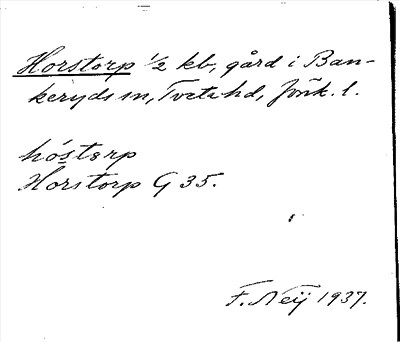 Horstorp ½ kb, gård i Ban-
keryds sn, Tveta hd, Jönk. l.
hóstərp
Horstorp G 35.
F. Neij 1937.